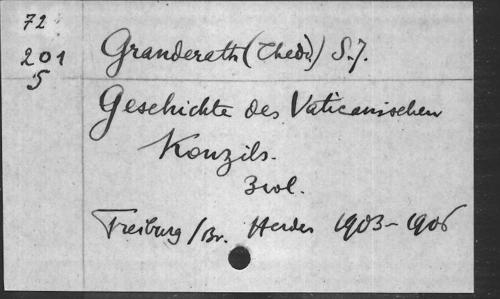 72
201
5
Granderath (Theod.) S.J.
Geschichte des Vaticanischen
Konzils.
3 vol.
Freiburg /Br. Herder 1903-1906